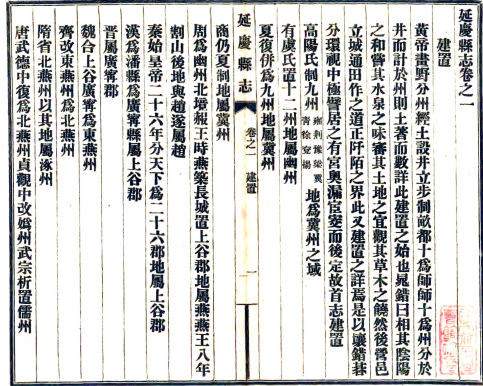 延慶縣志卷之一
建置
黃帝畫野分州經土設井立步制畝都十爲師師十爲州分於
井而計於州則土著而數詳此建置之始也晁錯曰相其陰陽
之和嘗其水泉之味審其土地之宜觀其草木之饒然後營邑
立城通田作之道正阡陌之界此又建置之詳焉是以壤錯棊
分環視中極譬居之有宮奧漏宧窔而後定故首志建置
高陽氏制九州雍荆豫梁冀青徐兗揚地爲冀州之域
有虞氏置十二州地屬幽州
夏復併爲九州地屬冀州
延慶縣志
卷之一
建置
一
商仍夏制地屬冀州
周爲幽州北境赧王時燕築長城置上谷郡地屬燕燕王八年
割山後地與趙遂屬趙
秦始皇帝二十六年分天下爲三十六郡地屬上谷郡
漢爲潘縣爲廣甯縣屬上谷郡
晉屬廣甯郡
魏合上谷廣甯爲東燕州
齊改東燕州爲北燕州
隋省北燕州以其地屬涿州
唐武德中復爲北燕州貞觀中改嬀州武宗析置儒州